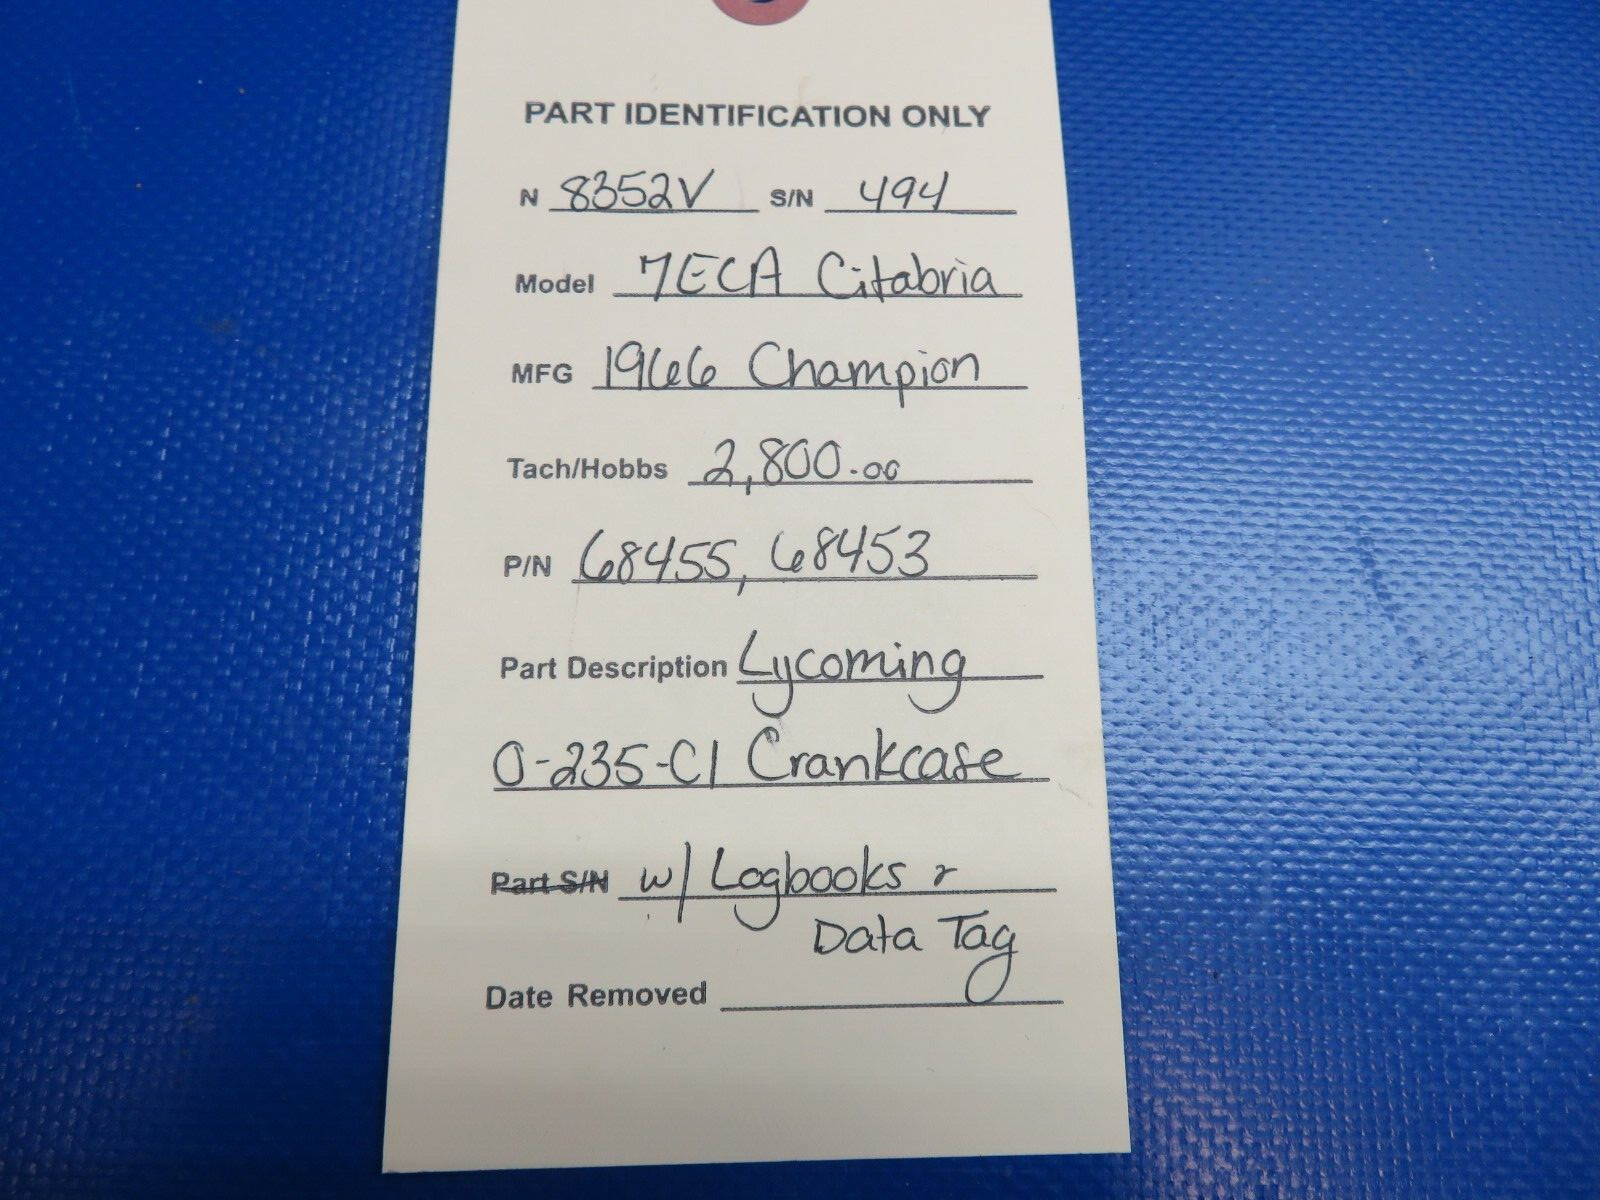 PART IDENTIFICATION ONLY
N 8352V S/N 494
Model 7ECA Citabria
MFG 1966 Champion
Tach/Hobbs 2,800.00
P/N 68455, 68453
Part Description Lycoming
O-235-C1 Crankcase
Part S/N w/ Logbooks &
Data Tag
Date Removed